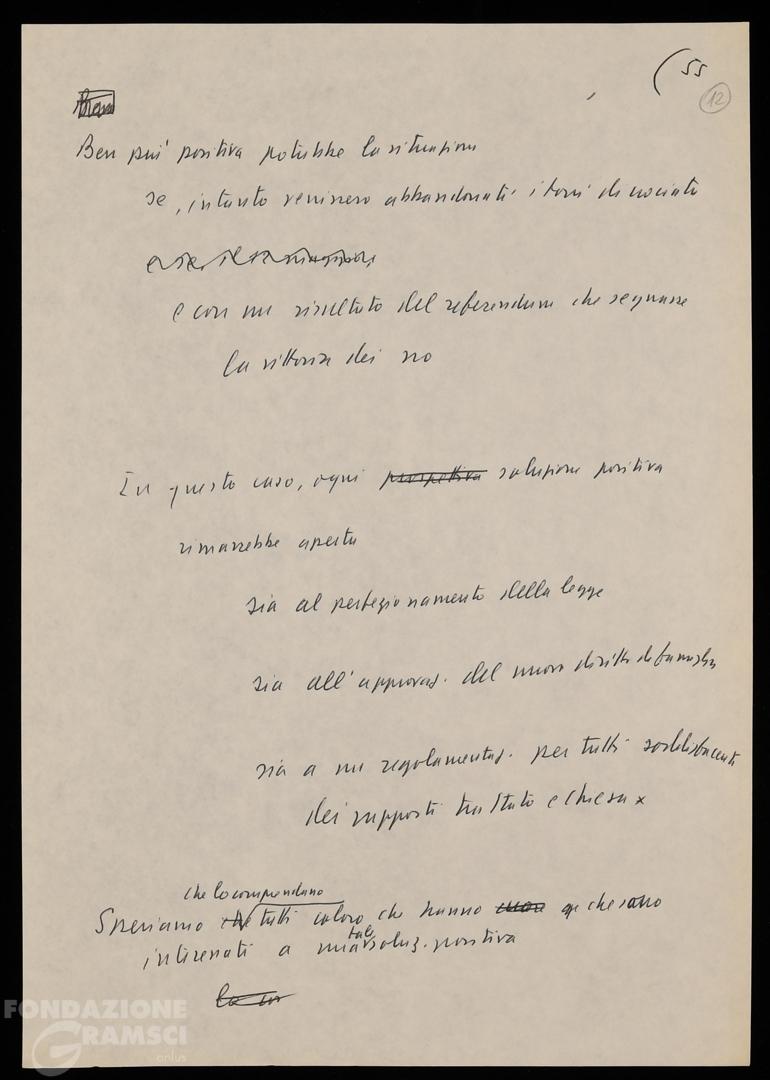 (55
12
Ben più positiva potrebbe la situazione
se, intanto venissero abbandonati i toni di crociata
e con un risultato del referendum che segnasse
la vittoria dei no
In questo caso, ogni prospettiva soluzione positiva
rimarrebbe aperta
sia al perfezionamento della legge
sia all'approvaz. del nuovo diritto di famiglia
sia a un regolamentaz. per tutti soddisfacente
dei rapporti tra Stato e Chiesa x
che lo comprendano
Speriamo che tutti coloro che hanno cuore che sono
tale
interessati a una soluz. positiva
FONDAZIONE
GRAMSCI
onlus